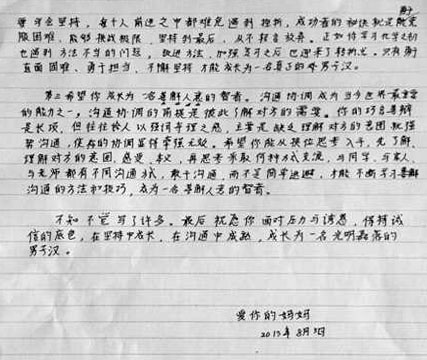 要学会坚持，每个人前进之中都难免遇到挫折，成功者的秘诀就是能克
服困难、能够挑战极限、坚持到最后，从不轻言放弃。正如你学习化学之初
也遇到方法不当的问题，改进方法，加强复习之后已迎来了转折点。只有敢
直面困难、勇于担当、不懈坚持才能成长为一名真正的男子汉。
第三希望你成长为一名善解人意的智者。沟通协调成为当今世界最重要
的能力之一，沟通协调的前提是彼此了解对方的需要。你的巧言善辩
是长项，但往往给人以强词夺理之感，主要是缺乏理解对方的意图就强
势沟通，使你的协调显得牵强无效。希望你能从换位思考入手，先了解，
理解对方的意图、感受、本义，再思考采取何种方式交流，与同学、与家人、
与老师都有不同沟通方式，敢于沟通，而不是简单逃避，才能不断学习善解
沟通的方法和技巧，成为一名善解人意的智者。
不知不觉写了许多。最后祝愿你面对压力与诱惑，保持诚
信的底色，在坚持中成长，在沟通中成熟，成长为一名光明磊落的
男子汉。
爱你的妈妈
2013年8月3日